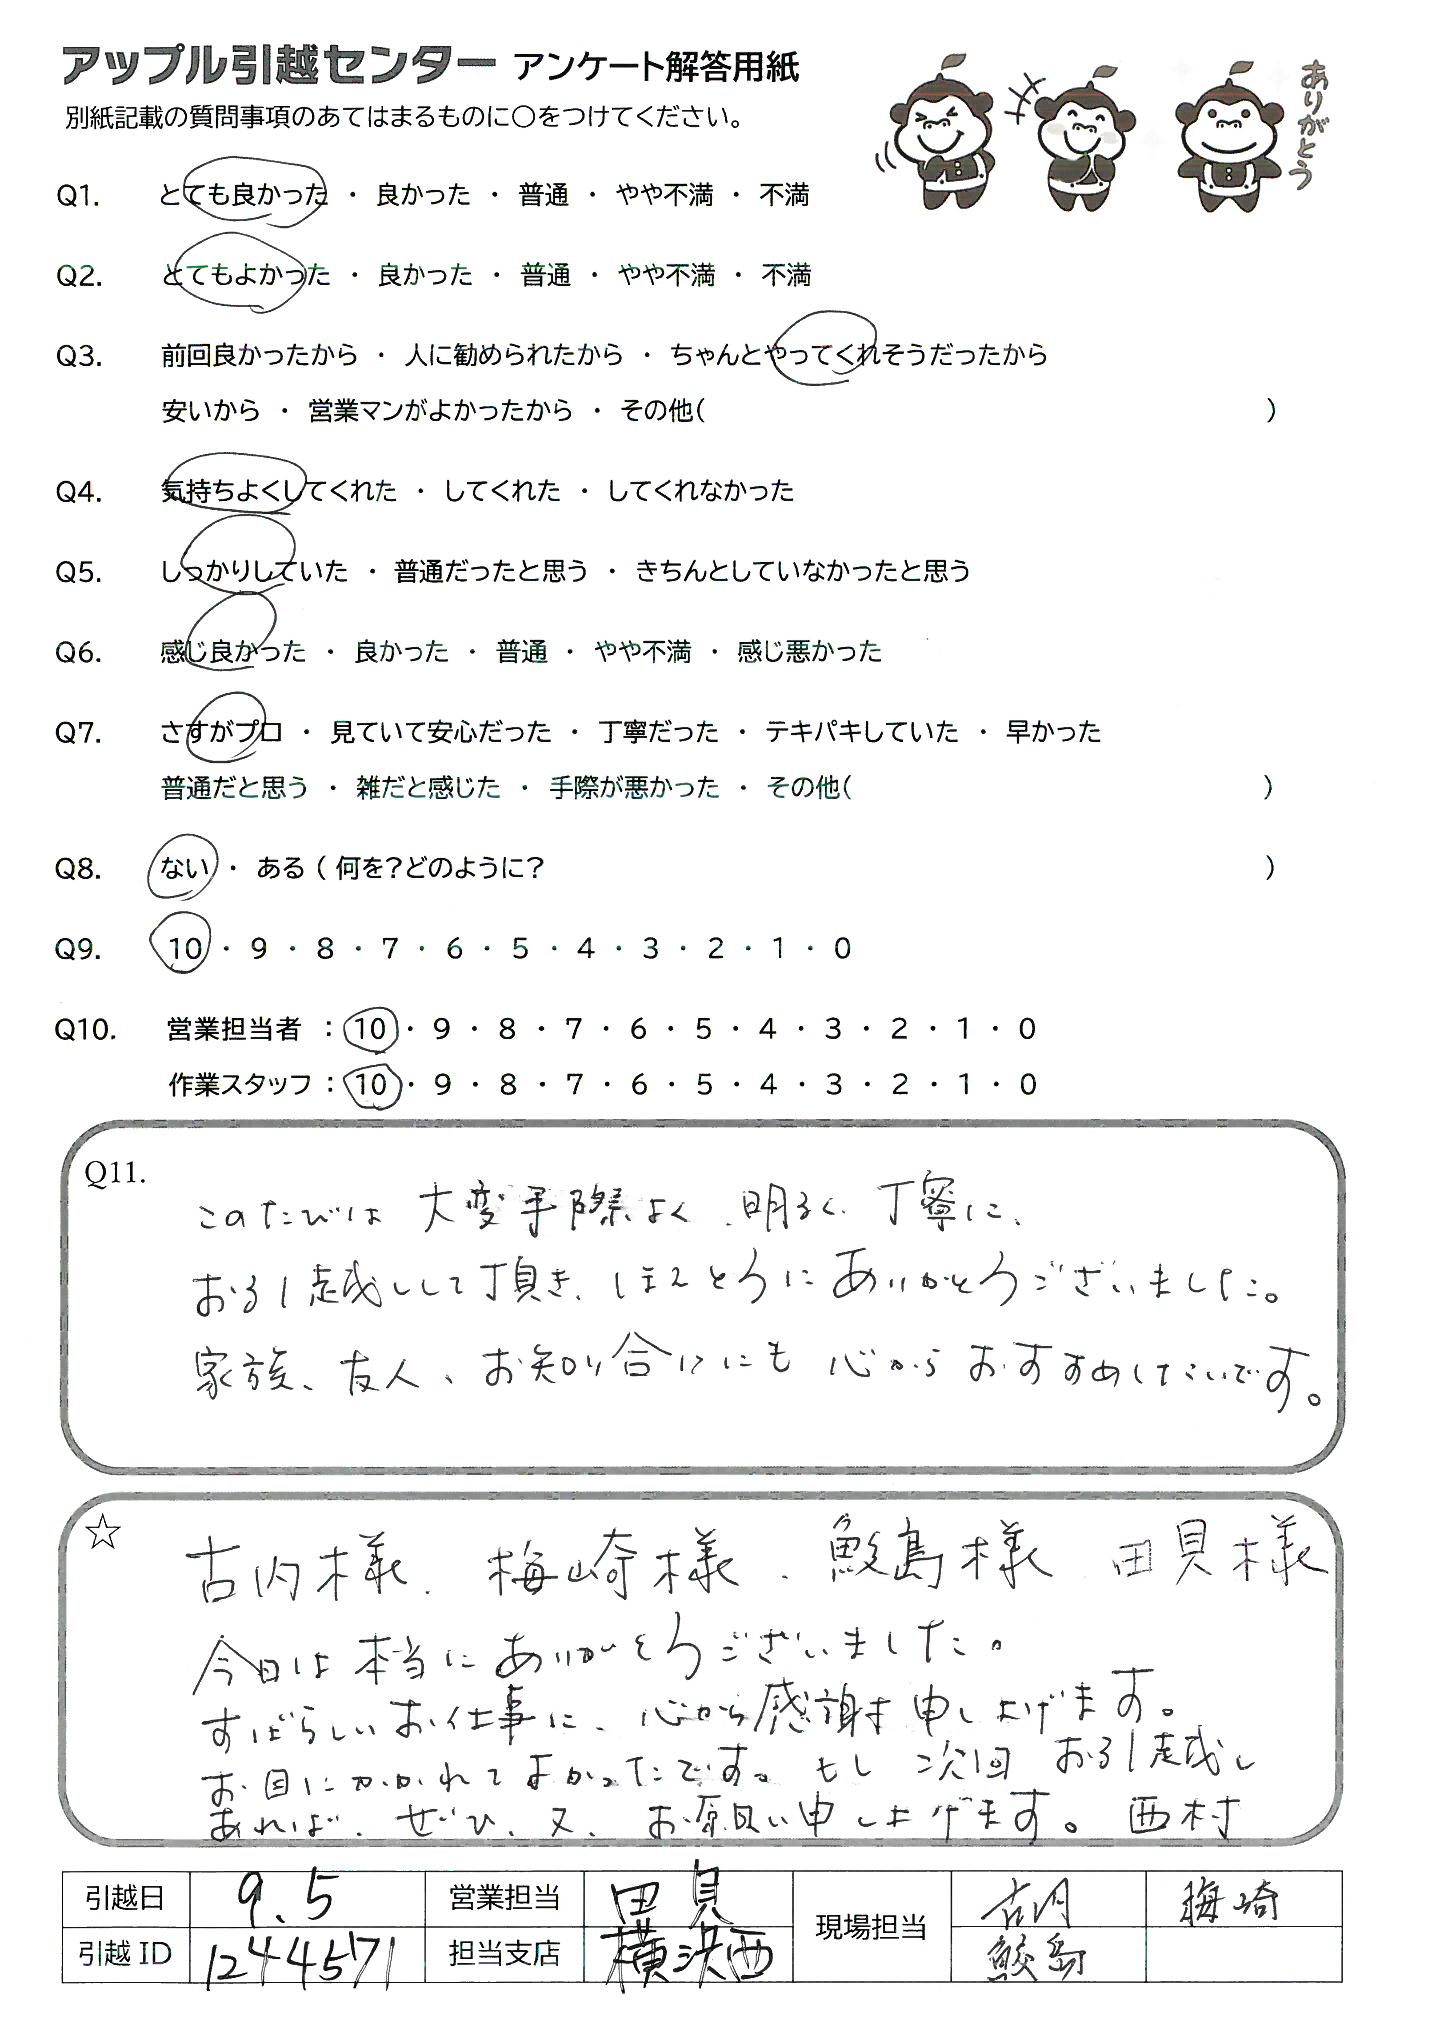 アップル引越センター アンケート解答用紙
別紙記載の質問事項のあてはまるものに○をつけてください。
ありがとう
Q1. とても良かった ・ 良かった ・ 普通 ・ やや不満 ・ 不満
Q2. とてもよかった ・ 良かった ・ 普通 ・ やや不満 ・ 不満
Q3. 前回良かったから ・ 人に勧められたから ・ ちゃんとやってくれそうだったから
安いから ・ 営業マンがよかったから ・ その他( )
Q4. 気持ちよくしてくれた ・ してくれた ・ してくれなかった
Q5. しっかりしていた ・ 普通だったと思う ・ きちんとしていなかったと思う
Q6. 感じ良かった ・ 良かった ・ 普通 ・ やや不満 ・ 感じ悪かった
Q7. さすがプロ ・ 見ていて安心だった ・ 丁寧だった ・ テキパキしていた ・ 早かった
普通だと思う ・ 雑だと感じた ・ 手際が悪かった ・ その他( )
Q8. ない ・ ある ( 何を?どのように? )
Q9. 10 ・ 9 ・ 8 ・ 7 ・ 6 ・ 5 ・ 4 ・ 3 ・ 2 ・ 1 ・ 0
Q10. 営業担当者 : 10 ・ 9 ・ 8 ・ 7 ・ 6 ・ 5 ・ 4 ・ 3 ・ 2 ・ 1 ・ 0
作業スタッフ : 10 ・ 9 ・ 8 ・ 7 ・ 6 ・ 5 ・ 4 ・ 3 ・ 2 ・ 1 ・ 0
Q11.
このたびは 大変手際よく、明るく、丁寧に、
お引越しして頂き、ほんとうにありがとうございました。
家族、友人、お知り合いにも 心からおすすめしたいです。
☆
古内様、梅崎様、鮫島様 田貝様
今日は本当にありがとうございました。
すばらしいお仕事に、心から感謝申し上げます。
お目にかかれてよかったです。もし次回 お引越し
あれば、ぜひ、又、お願い申し上げます。 西村
引越日 9.5 営業担当 田貝 現場担当 古内 梅崎
引越 ID 1244571 担当支店 横浜西 鮫島